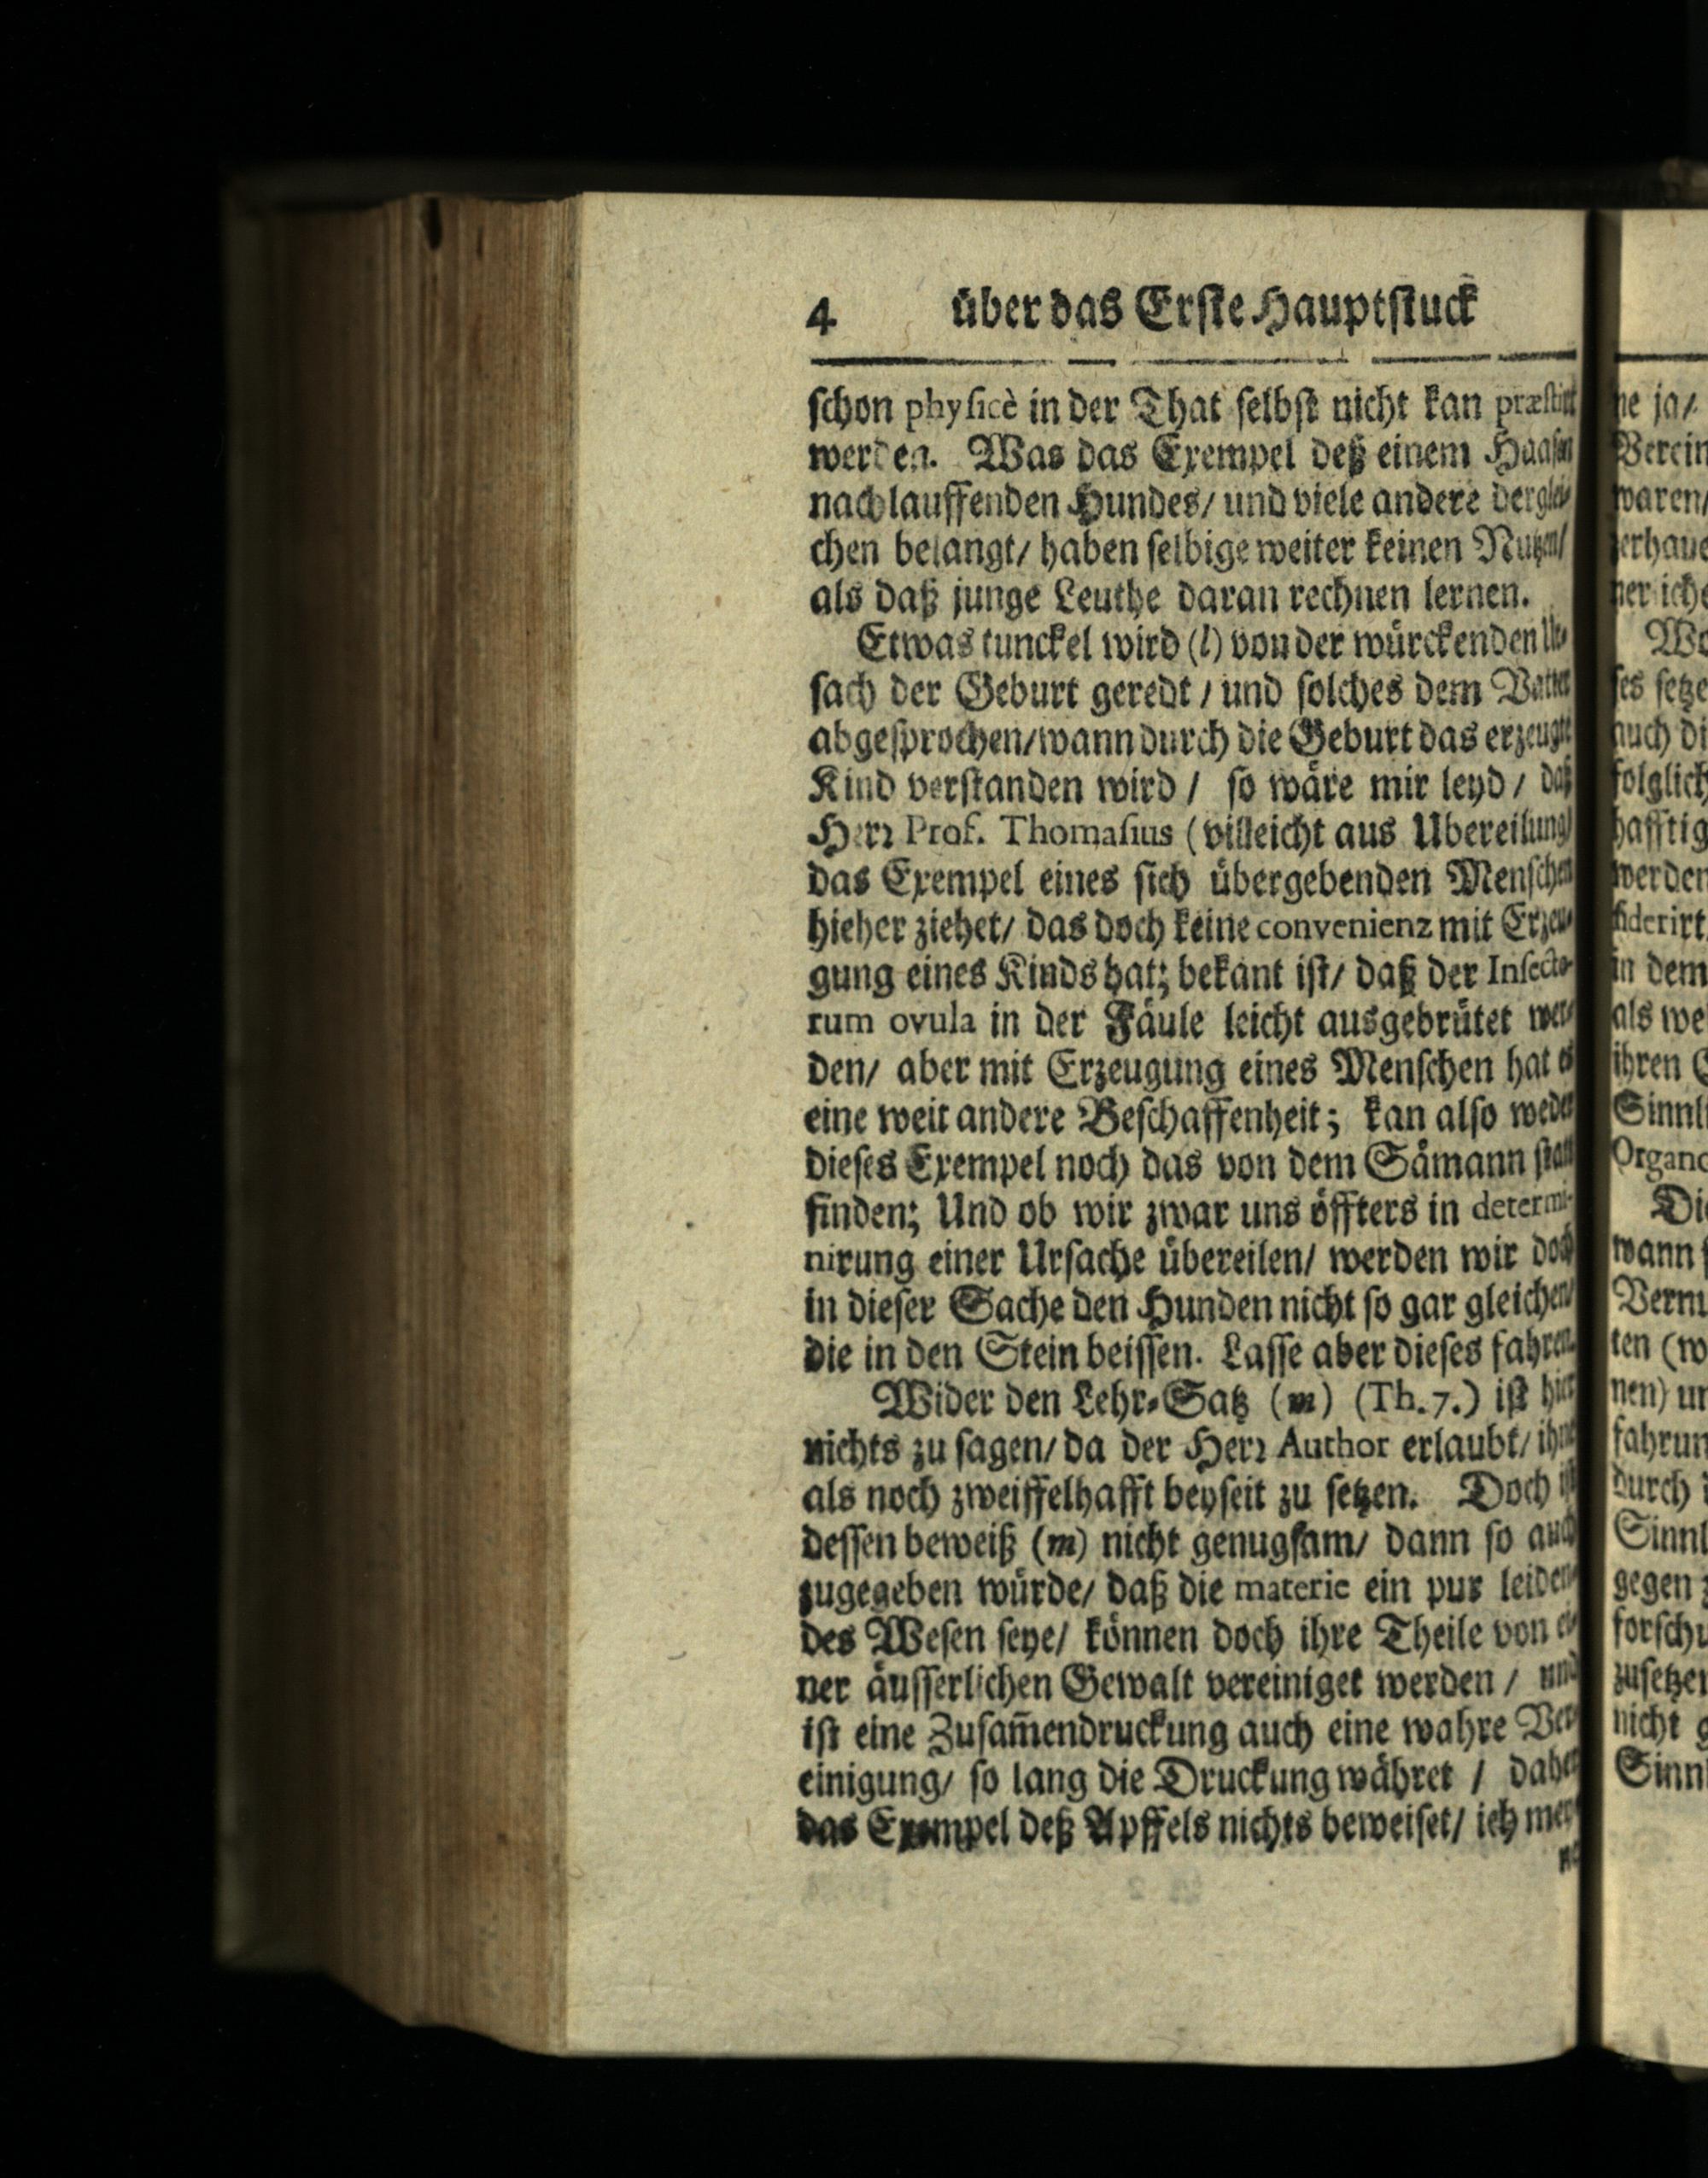 4 über das Erste Hauptstuck
schon physicè in der That selbst nicht kan præstirt
werden. Was das Exempel deß einem Haasen
nachlauffenden Hundes/ und viele andere derglei-
chen belangt/ haben selbige weiter keinen Nutzen/
als daß junge Leuthe daran rechnen lernen.
Etwas tunckel wird (l) von der würckenden Ur-
sach der Geburt geredt / und solches dem Vatter
abgesprochen/wann durch die Geburt das erzeugte
Kind verstanden wird / so wäre mir leyd / daß
Herr Prof. Thomasius (villeicht aus Ubereilung)
das Exempel eines sich übergebenden Menschen
hieher ziehet/ das doch keine convenienz mit Erzeu-
gung eines Kinds hat; bekant ist/ daß der Insecto-
rum ovula in der Fäule leicht ausgebrütet wer-
den/ aber mit Erzeugung eines Menschen hat es
eine weit andere Beschaffenheit; kan also weder
dieses Exempel noch das von dem Sämann statt
finden; Und ob wir zwar uns öffters in determi-
nirung einer Ursache übereilen/ werden wir doch
in dieser Sache den Hunden nicht so gar gleichen/
die in den Stein beissen. Lasse aber dieses fahren.
Wider den Lehr-Satz (m) (Th. 7.) ist hier
nichts zu sagen/ da der Herr Author erlaubt/ ihne
als noch zweiffelhafft beyseit zu setzen. Doch ist
dessen beweiß (m) nicht genugsam/ dann so auch
zugegeben würde/ daß die materie ein pur leiden-
des Wesen seye/ können doch ihre Theile von ei-
ner äusserlichen Gewalt vereiniget werden / und
ist eine Zusam̄endruckung auch eine wahre Ver-
einigung/ so lang die Druckung währet / daher
das Exempel deß Apffels nichts beweiset/ ich mey-
ne ja/
Verein
waren/
Wo
auch di
folglich
hafftig
werden
siderirt
in dem
als we
ihren
Sinnl
Organo
Die
wann
ten (w
nen) un
fahrun
durch
Sinnl
gegen
forschu
zusetzen
nicht
Sinnl